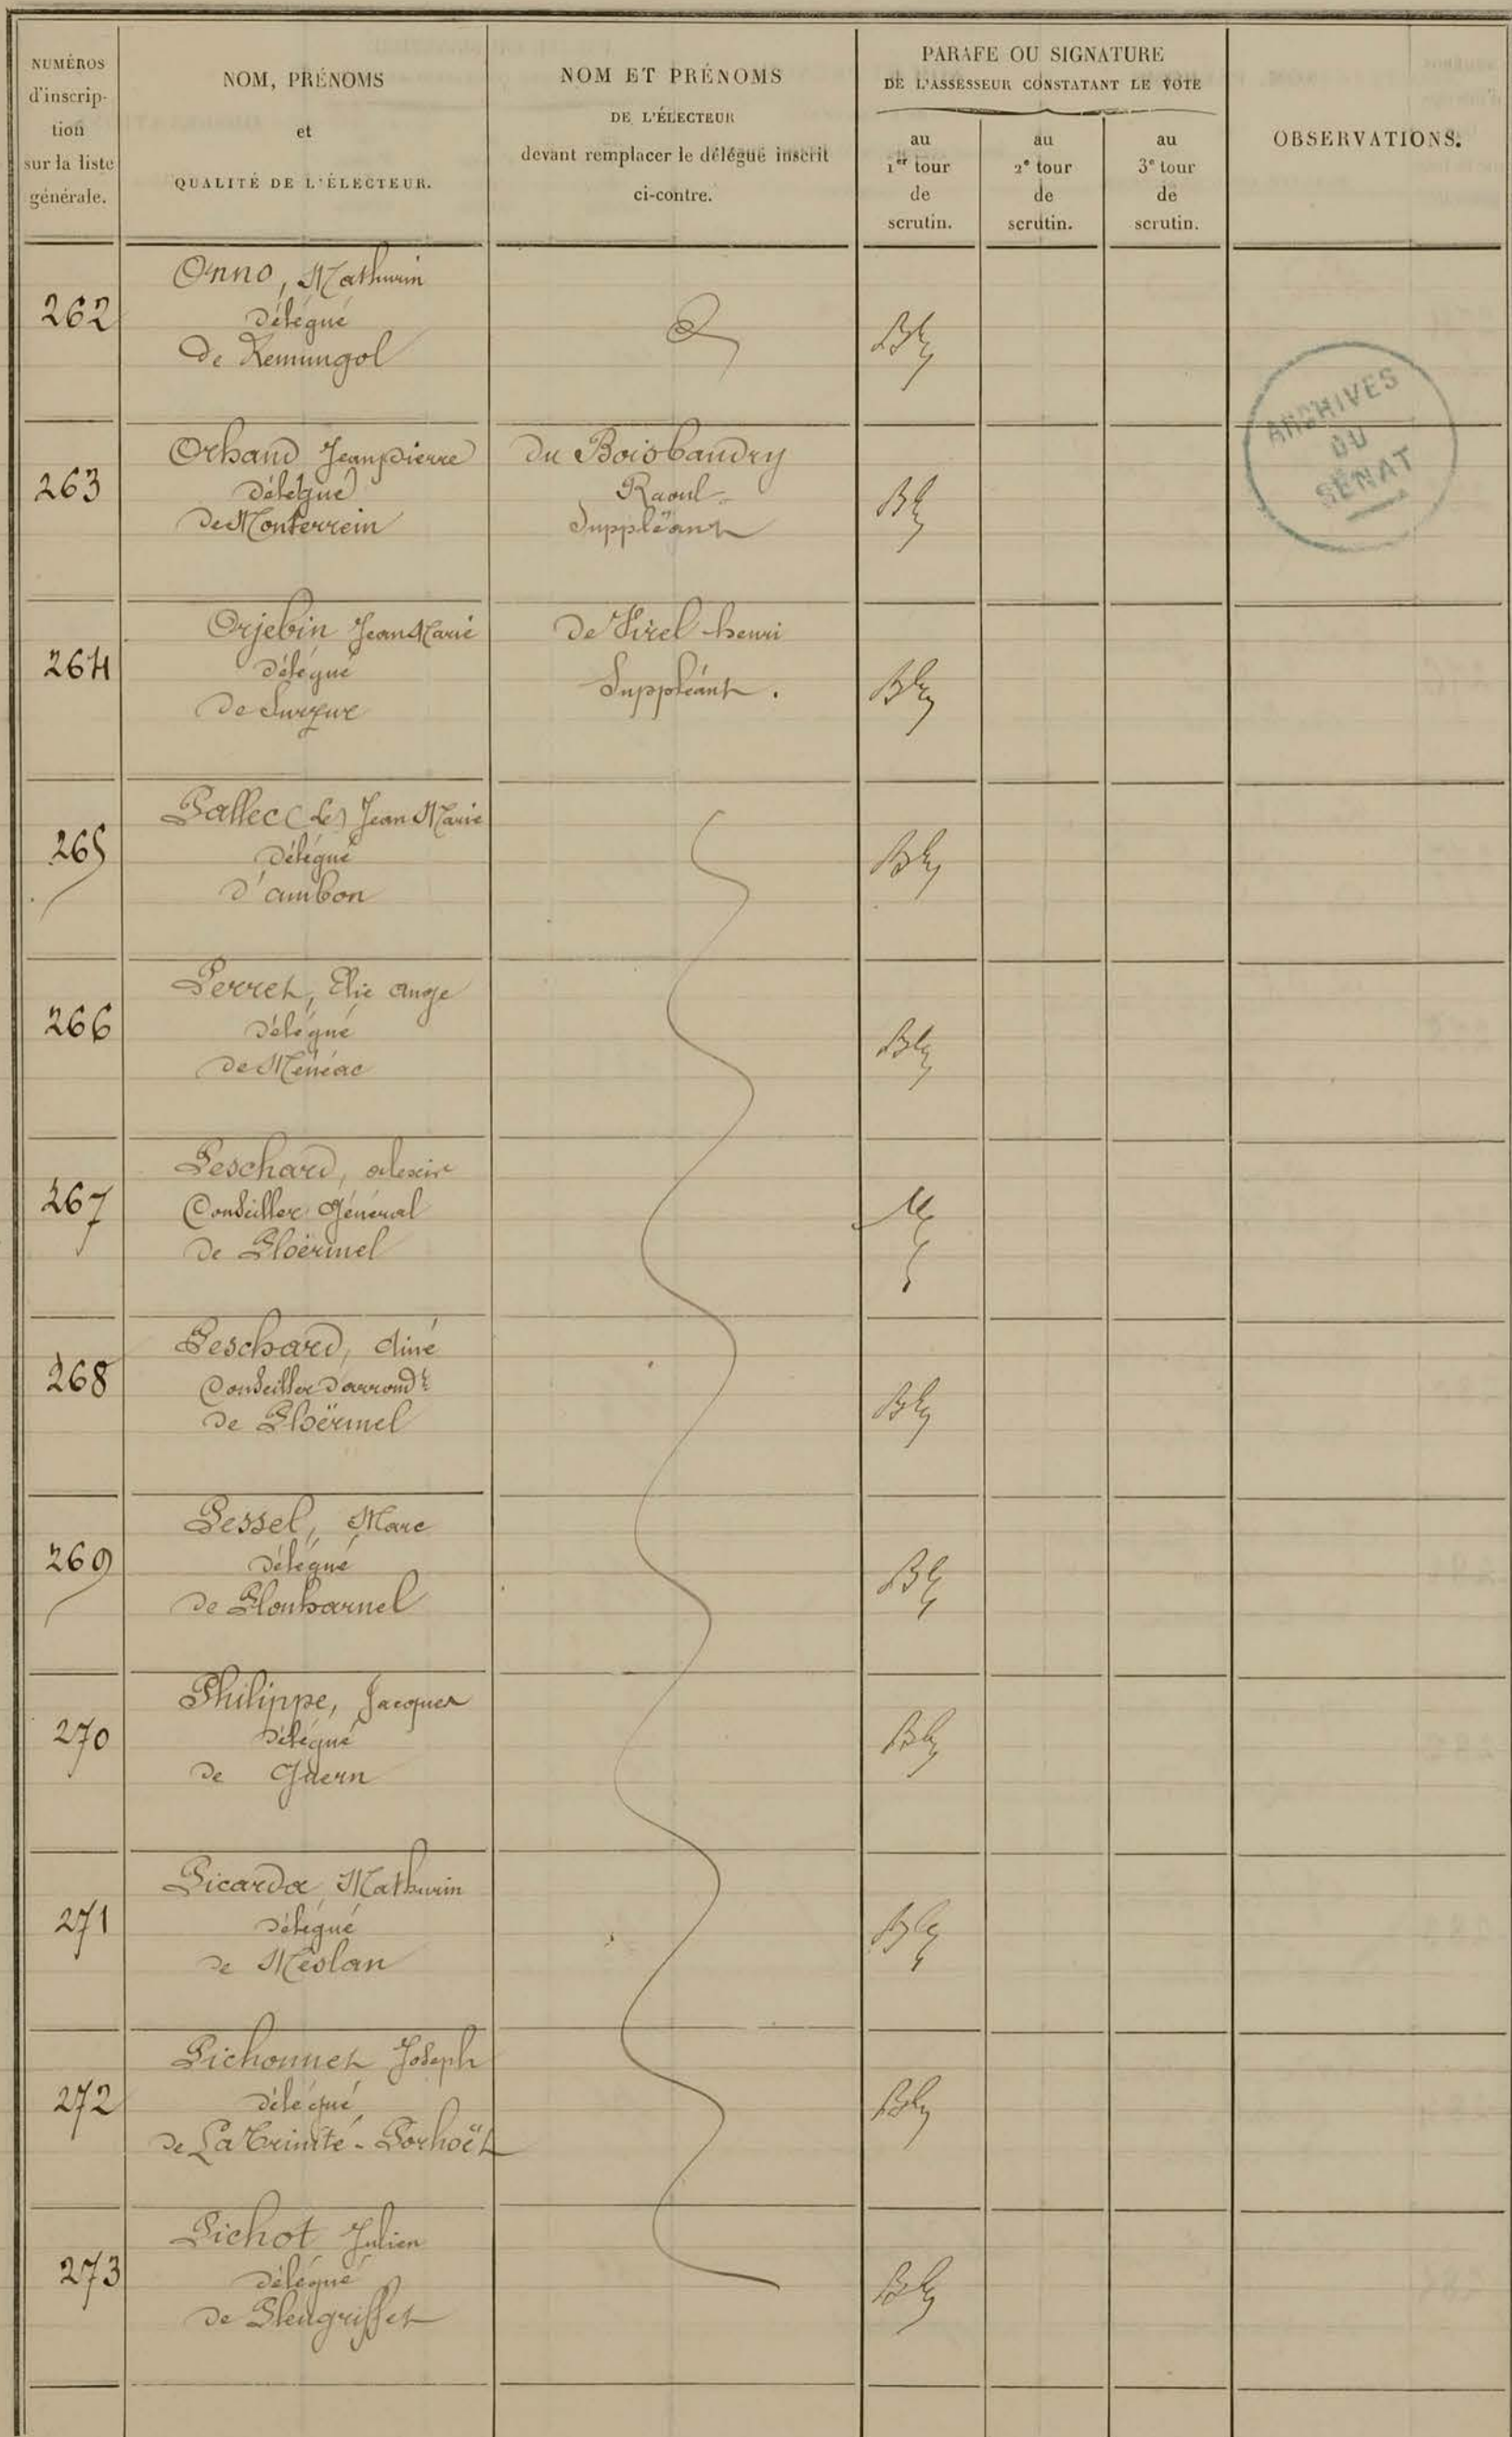 NUMÉROS
d'inscrip-
tion
sur la liste
générale.
NOM, PRÉNOMS
et
QUALITÉ DE L'ÉLECTEUR.
NOM ET PRÉNOMS
DE L'ÉLECTEUR
devant remplacer le délégué inscrit
ci-contre.
PARAFE OU SIGNATURE
DE L'ASSESSEUR CONSTATANT LE VOTE
au
1er tour
de
scrutin.
au
2e tour
de
scrutin.
au
3e tour
de
scrutin.
OBSERVATIONS.
262
Onno, Mathurin
Délégué
De Remungol
ARCHIVES
DU
SÉNAT
263
Orhand Jean pierre
Délégué
De Monterrein
du Boisbaudry
Raoul
Suppléant
264
Orjebin Jean Marie
Délégué
De Surzur
De Virel henri
Suppléant.
265
Pallec (Le) Jean Marie
Délégué
D'ambon
266
Perret, Elie ange
Délégué
De Ménéac
267
Peschard, alexis
Conseiller Général
De Ploërmel
268
Peschard, Aimé
Conseiller D'arrondt
De Ploërmel
269
Pessel, Marc
Délégué
De Plouharnel
270
Philippe, Jacques
Délégué
De Guern
271
Picarda, Mathurin
Délégué
De Meslan
272
Pichonnet Joseph
Délégué
De La Trinité-Porhoët
273
Pichot Julien
Délégué
De Pleugriffet